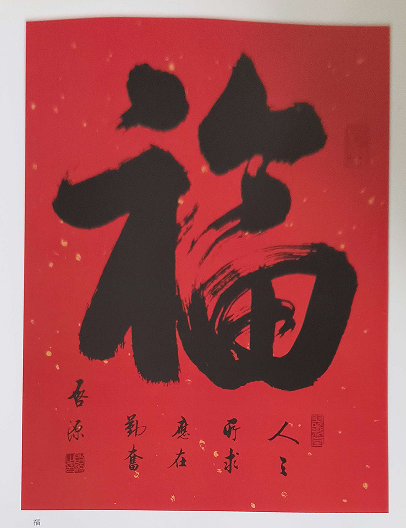 福
人之
所求
應在
勤奮
吾源
福